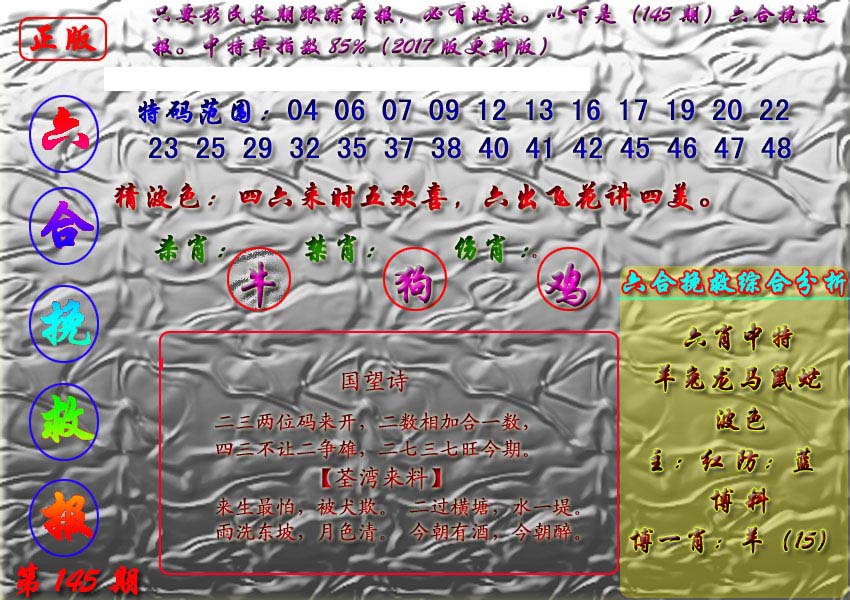 正版
只要彩民长期跟踪本报，必有收获。以下是（145 期）六合挽救
报。中特率指数 85%（2017 版更新版）
六
合
挽
救
报
第 145 期
特码范围：04 06 07 09 12 13 16 17 19 20 22
23 25 29 32 35 37 38 40 41 42 45 46 47 48
猜波色：四六来时五欢喜，六出飞花讲四美。
杀肖： 禁肖： 伤肖：。
牛 狗 鸡
国望诗
二三两位码来开，二数相加合一数，
四三不让二争雄，二七三七旺今期。
【荃湾来料】
来生最怕，被犬欺。 二过横塘，水一堤。
雨洗东坡，月色清。 今朝有酒，今朝醉。
六合挽救综合分析
六肖中特
羊兔龙马鼠蛇
波色
主：红防：蓝
博料
博一肖：羊（15）